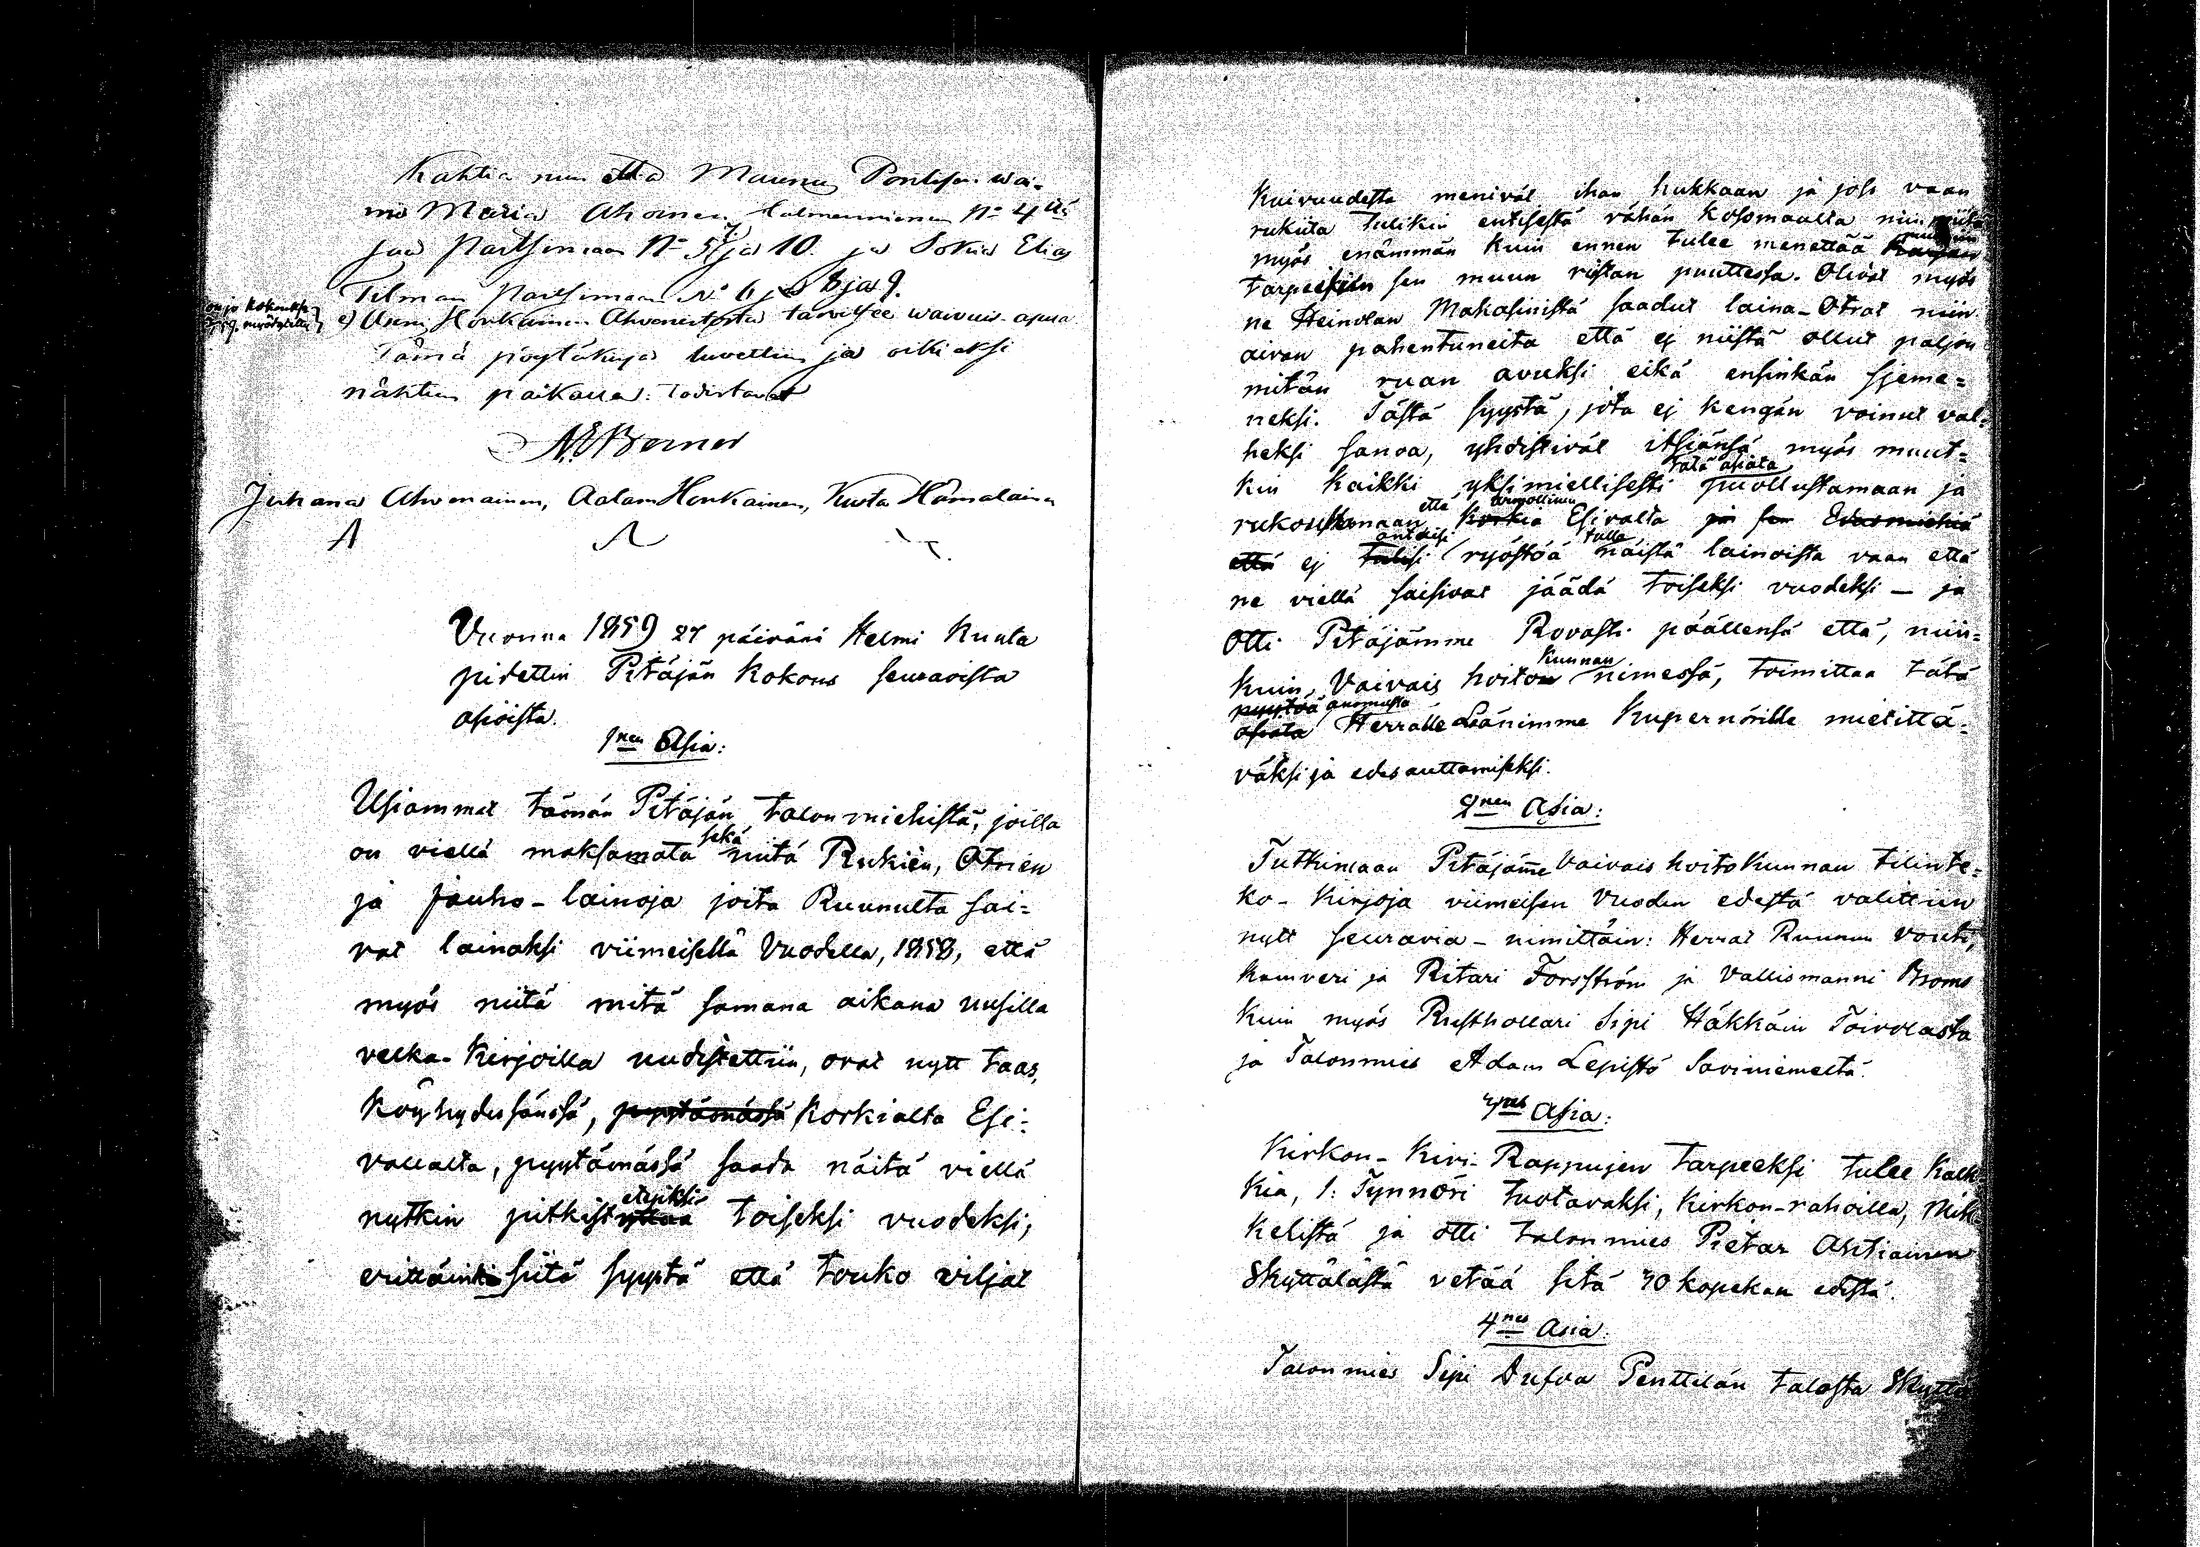 Kahtia nun että Maunu Pontisen wai-
mo Maria Ahoinen Nº 4
ja Partsimaa Nº 5, 7 ja 10. ja Sokia Elias
Tilman Partsimaan Nº 6 ja 8 ja 9.
e) Honkainen tarvitsee waivais-apua
Tämä pöytäkirja luvettiin ja oikiaksi
nähtiin paikalla: Todistavat
Borner
Juhana Ahvenainen, Aadam Honkainen, Kusta Hämäläinen
Vuonna 1859 27 päivänä Helmi Kuuta
pidettin Pitäjän Kokous seuraavista
asioista.
1nen Asia:
Usiammat tämän Pitäjän talonmiehistä, joilla
on viellä maksamata sekä niitä Rukiin, Otrien
ja jauho-lainoja joita Ruunulta sai-
vat lainaksi viimeisellä Vuodella, 1858, että
myös niitä mitä samana aikana uusilla
velka-Kirjoilla uudistettiin, ovat nytt taas,
Köyhydesänsä, pyytämässä Korkialta Esi-
vallalta, pyytämässä saada näitä viellä
nytkin pitkist toiseksi vuodeksi,
erittäinki siitä syystä että touko viljat
Kuivuudesta menivät ihan hukkaan ja jos vaan
rukiita tulikin entisestä vähän kosomaalta niin
myös enämmän kuin ennen tulee menettää
tarpeisiin sen muun ristan puuttessa. Olivat myös
ne Heinolan Makasinista saadut laina-Otrat niin
aivan pahentuneita että ej niistä ollut paljon
mitän ruan avuksi eikä ensinkän sjeme-
neksi. Tästä syystä, jota ej kengän voinut val-
heksi sanoa, yhdistivät itsiänsä myös muut-
kin kaikki yksimiellisesti tätä asiata puollustamaan ja
rukoilemaan että armollinen Korkia Esivalta ja sen
että ej antaisi tulisi ryöstöä tulla näistä lainoista vaan että
ne viellä saisivat jäädä toiseksi vuodeksi — ja
Otti Pitäjämme Rovasti päällensä että, niin-
kuin Vaivais hoitokunnan nimessä, toimittaa tätä
pyytöä anomusta
asiata Herralle Läänimme Kupernörille mielittä-
väksi ja edesauttamiseksi.
2nen Asia:
Tutkimaan Pitäjämme Vaivais hoitoKunnan tilinte-
ko-Kirjoja viimeisen Vuoden edestä valittiin
nytt seuravia - nimittäin: Herrat Ruunun vouti,
Kamveri ja Ritari Forsström ja Vallismanni Broms
Kuin myös Rusthollari Sipi Häkkäin Toivolasta
ja Talonmies Adam Lepistö Saviniemeltä.
3mas Asia:
Kirkon-Kivi-Rappujen tarpeeksi tulee Kalk-
kia, 1: Tynnöri tuotavaksi, Kirkon-rahoilla, Mik-
kelistä ja otti talonmies Pietar Ahtiainen
Skyttälästä vetää sitä 70 kopekan edestä.
4nes Asia:
Talonmies Sipi Dufva Penttilän talosta